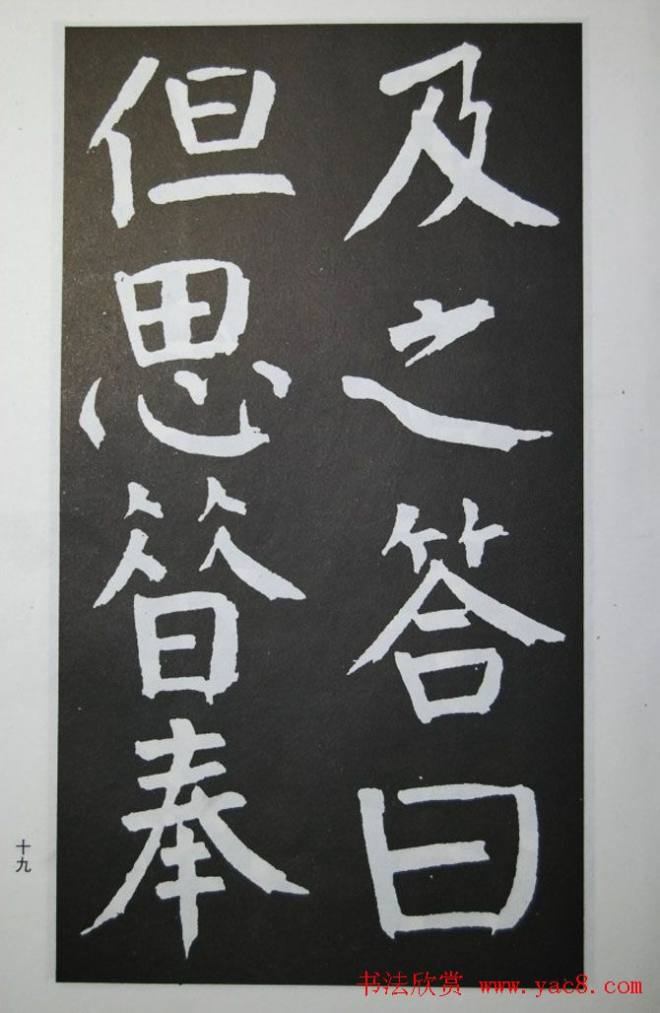 及之答曰
但思奉
十九
书法欣赏 www.yac8.com